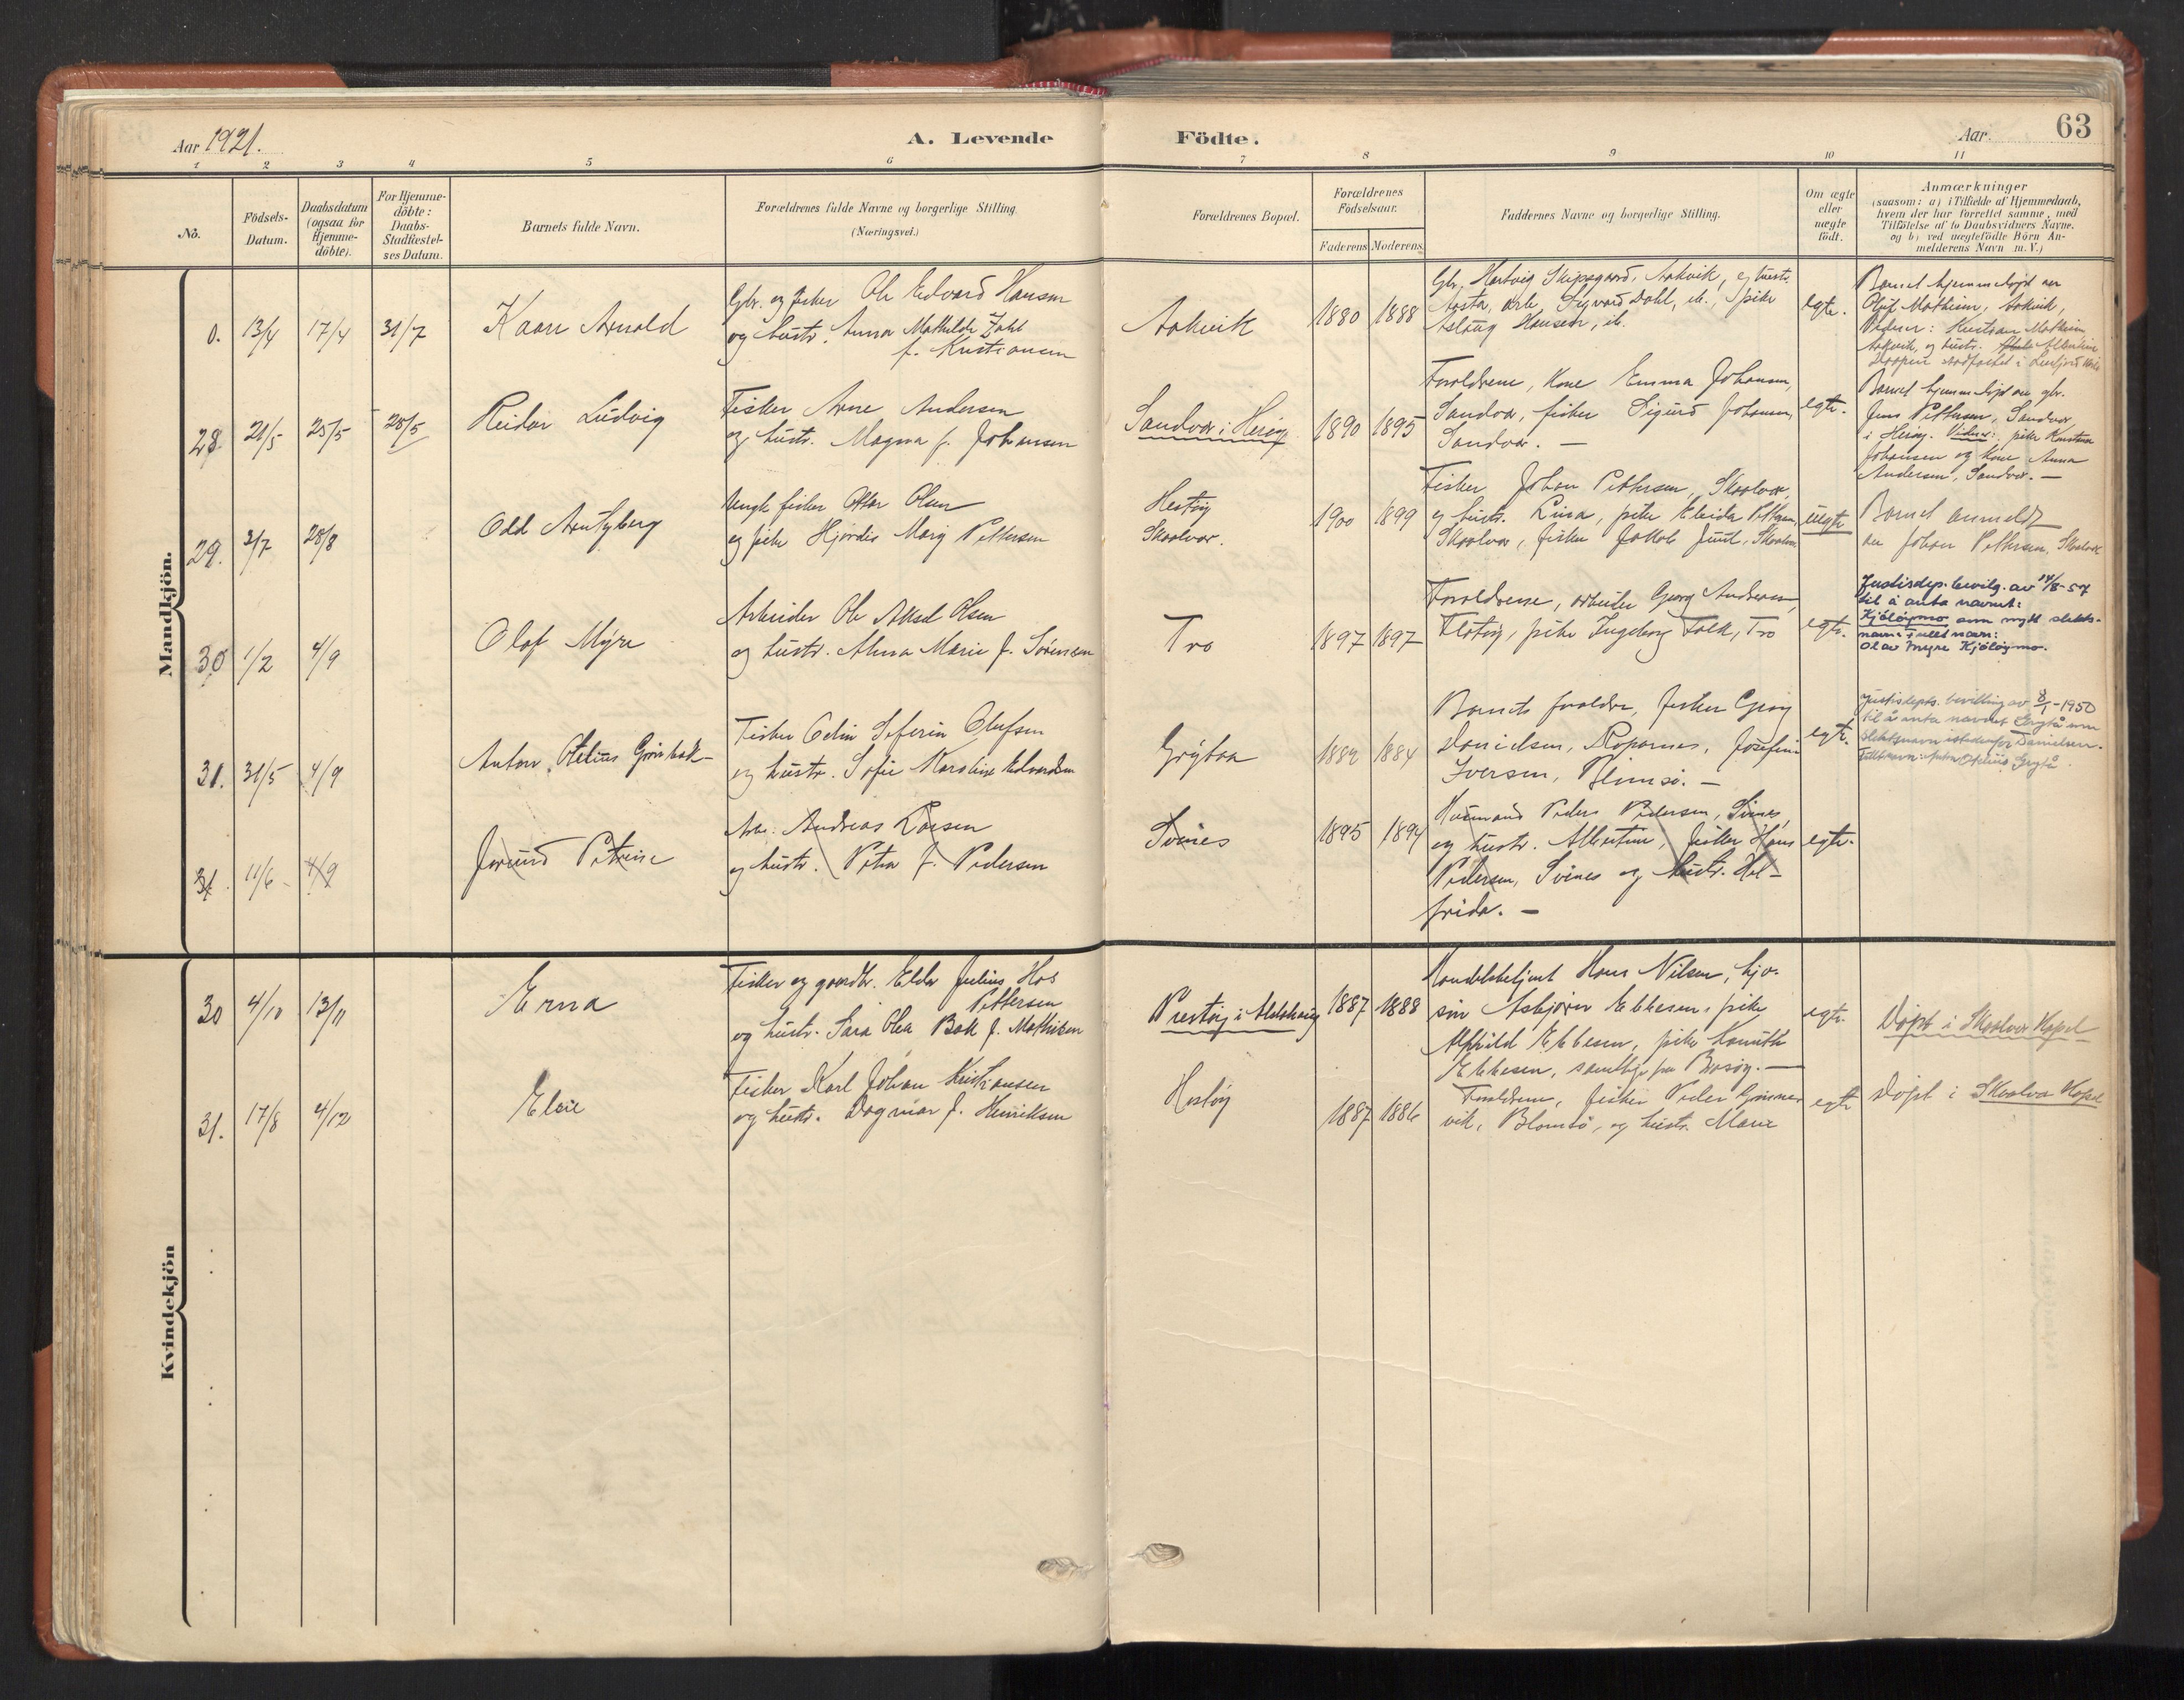 Aar 1921.
A. Levende
Födte.
Aar.
63
1 2 3 4 5 6 7 8 9 10 11
No.
Födsels-
Datum.
Daabsdatum
(ogsaa for
Hjemme-
döbte).
For Hjemme-
döbte:
Daabs-
Stadfæstel-
ses Datum.
Barnets fulde Navn.
Forældrenes fulde Navne og borgerlige Stilling
(Næringsvei.)
Forældrenes Bopæl.
Forældrenes
Födselsaar.
Faderens Moderens
Faddernes Navne og borgerlige Stilling.
Om ægte
eller
uægte
födt.
Anmærkninger
(saasom: a) i Tilfælde af Hjemmedaab,
hvem der har forrettet samme, med
Tilföielse af to Daabsvidners Navne.
og b) ved uægtefödte Börn An-
melderens Navn m. V.)
Mandkjön.
0. 13/4 17/4 31/7
Kaare Arnold
Gbr. og fisker Ole Edvard Hansen
og hustr. Anna Mathilde Dahl
f. Kristiansen
Aakvik
1880 1888
Gbr. Hartvig Skipsgaard, Aakvik, og hustr.
Aasta, arb. Sigvard Dahl, ib., pike
Aslaug Hansen, ib.
egte.
Barnet hjemmedøpt av
Oluf Mathisen, Aakvik,
Vidner: Kristian Mathisen
Aakvik, og hustr. Albertine
Daapen stadfæstet i
28. 21/5 25/5 28/5
Reidar Ludvig
Fisker Arne Andersen
og hustr. Magna f. Johansen
Sandvær i Herøy
1890 1895
Forældrene, Kone Emma Johansen,
Sandvær, fisker Sigurd Johansen,
Sandvær. —
egte.
Barnet hjemmedøpt av gbr.
Jens Pettersen, Sandvær
i Herøy. Vidner: pike Kristine
Johansen og Kone Anna
Andersen, Sandvær. —
29. 2/7 28/8
Odd Arnt
Ungk. fisker Ottar Olsen
og pike Hjørdis Marg Pettersen
Hestøy
Skaalvær.
1900 1899
Fisker Johan Pettersen, Skaalvær,
og hustr. Lina, pike Eleida Pettersen,
Skaalvær, fisker Jakob Juul, Skaalvær
uegte
Barnet anmeldt
av Johan Pettersen, Skaalvær
30 1/2 4/9
Olaf Myre
Arbeider Ole Aksel Olsen
og hustr. Alma Marie f. Sørensen
Tro
1897 1897
Forældrene, arbeider Georg Andreassen,
Fløtøy, pike Ingeborg Falk, Tro
egte.
Justisdep. bevilg. av 14/8-57
til å anta navnet:
Kjöløymo som nytt slekts-
navn. Fullt navn:
Olav Myre Kjöløymo.
31. 31/5 4/9
Anton Otelius Grønbæk
Fisker Odin Seferin Olufsen
og hustr. Sofie Karoline Edvardsen
Grøytaa
1882 1884
Barnets forældre, fisker Georg
Danielsen, Kopornes, Josefine
Iversen, Blomsø. —
egte.
Justisdepts. bevilling av 8/1-1950
til å anta navnet Grytå som
slektsnavn istedenfor Danielsen.
Fullt navn: Anton Otelius Grytå.
31. 11/6 4/9
Jorund Petrine
Arb. Andreas Larsen
og hustr. Petra f. Pedersen
Svines
1895 1894
Husmand Peder Pedersen, Svines,
og hustr. Albertine, fisker Hans
Pedersen, Svines og hustr. Hel-
frida. —
egte.
Kvindekjön
30 4/10 13/11
Erna
Fisker og gaardbr. Eldor Julius Hos
Pettersen
og hustr. Sara Olea Bak f. Mathisen
Prestøy i Alstahaug
1887 1888
Handelsbetjent Hans Nilsen, hjo-
sin Asbjørn Ebbesen, pike
Alfhild Ebbesen, pike Hanuth
Ebbesen, samtlige fra Brasøy. —
egte.
Døpt i Skaalvær Kapel
31. 17/8 4/12
Elsie
Fisker Karl Johan Kristiansen
og hustr. Dagmar f. Henriksen
Hestøy
1887 1886
Forældrene, fisker Peder Grønnes
vik, Blomsø, og hustr. Marie
egte
Døpt i Skaalvær Kapel